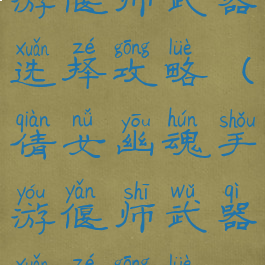 游偃师武器
xuǎn zé gōng lüè
选择攻略（
qiàn nǚ yōu hún shǒu
倩女幽魂手
yóu yǎn shī wǔ qì
游偃师武器
xuǎn zé gōng lüè